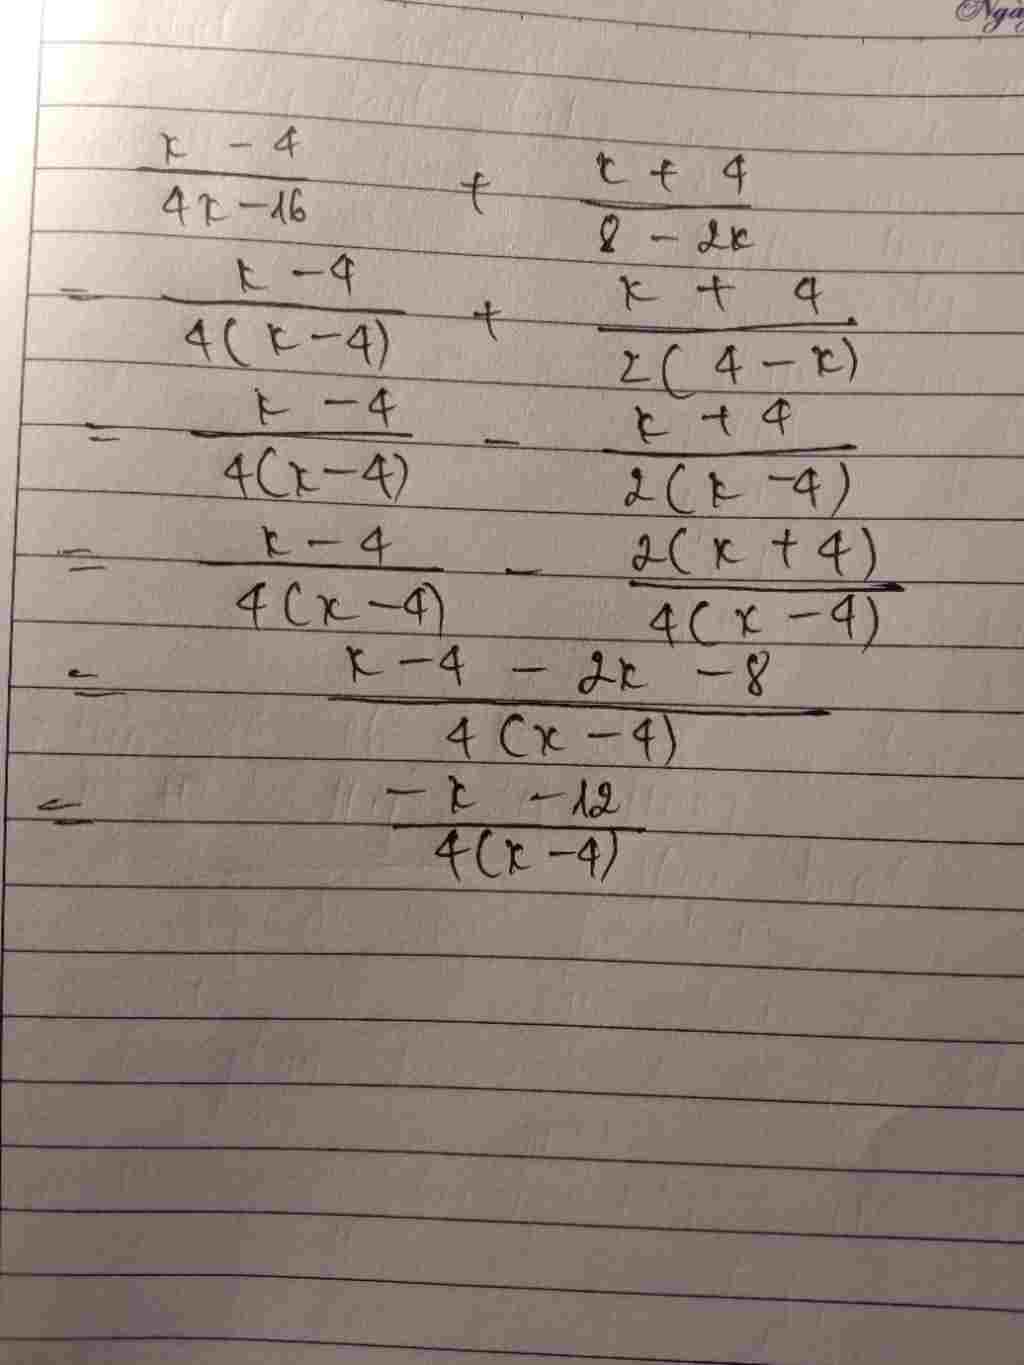 Ngày
x - 4 / 4x - 16 + x + 4 / 8 - 2x
= x - 4 / 4(x - 4) + x + 4 / 2(4 - x)
= x - 4 / 4(x - 4) - x + 4 / 2(x - 4)
= x - 4 / 4(x - 4) - 2(x + 4) / 4(x - 4)
= x - 4 - 2x - 8 / 4(x - 4)
= -x - 12 / 4(x - 4)